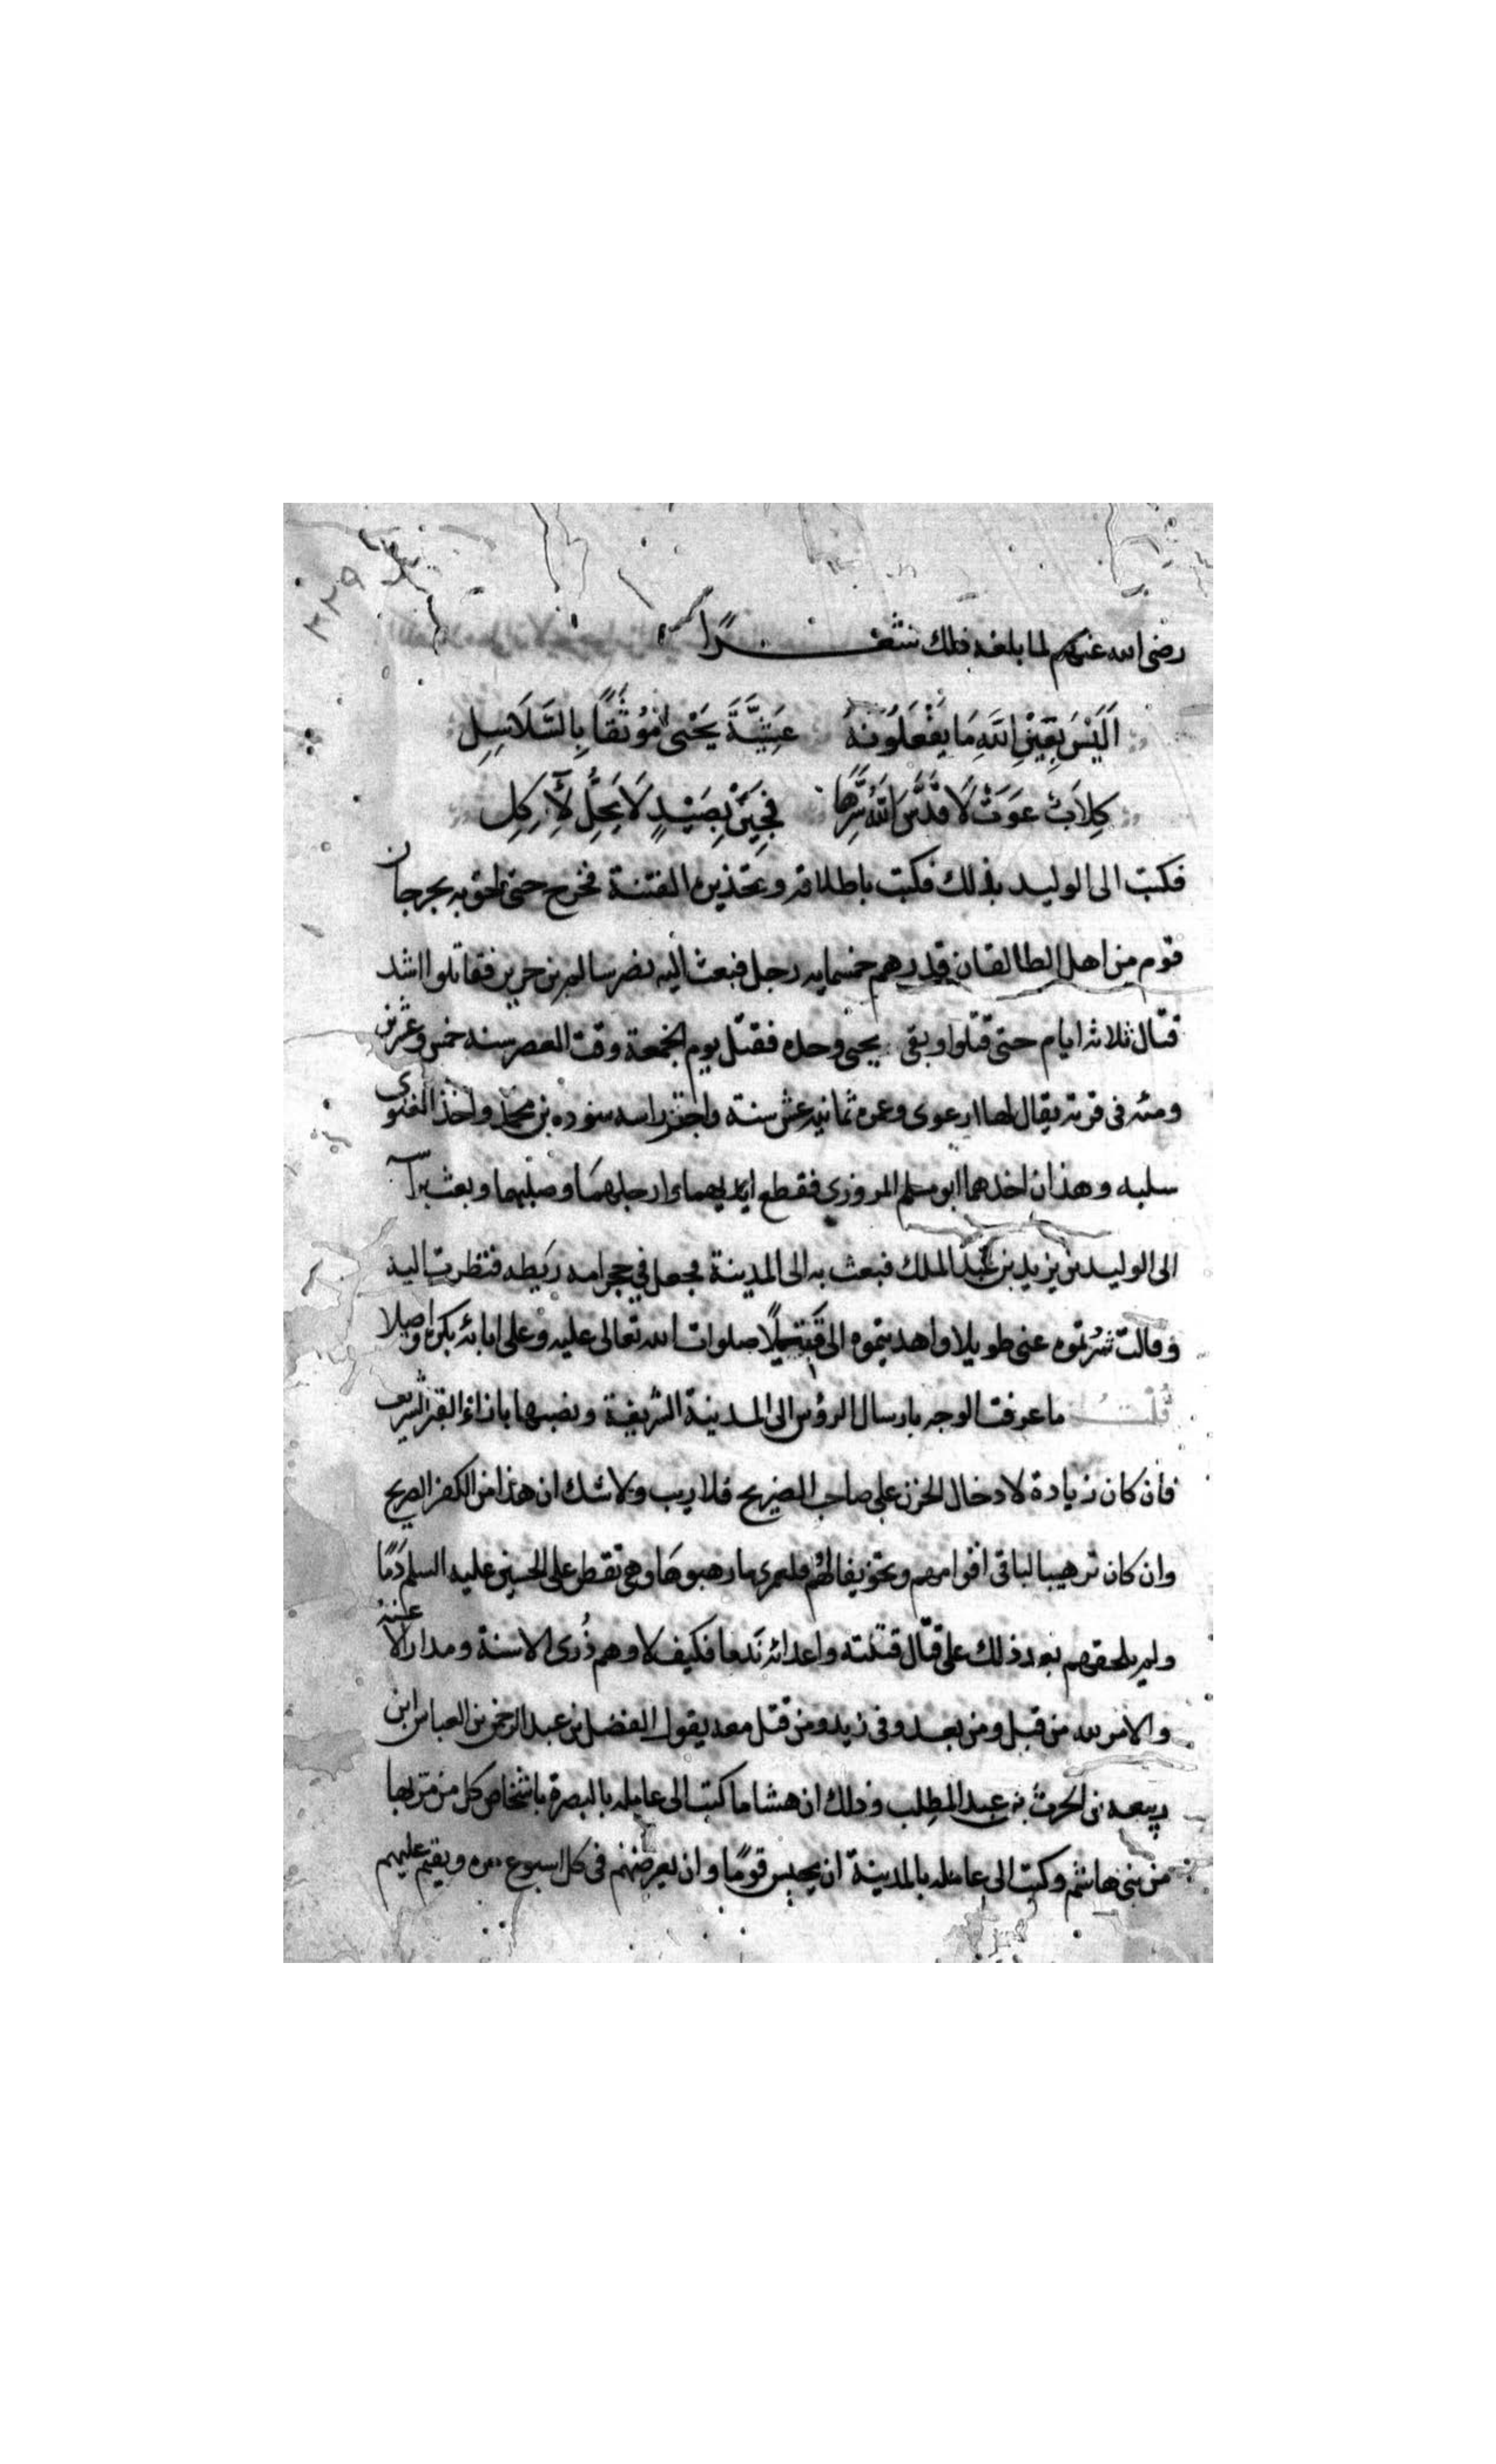 ٣٢٩
رضى الله عنهم لما بلغه ذلك شعـــرًا
اَلَيْسَ بِعَيْنِ اللهِ مَا يَفْعَلُونَهُ عَشِيَّةَ يَحْيٰى مُوثَقًا بِالسَّلَاسِلِ
كِلاَبٌ عَوَتْ لَا قَدَّسَ اللهُ سِرَّهَا فَجِئْنَ بِصَيْدٍ لَا يَحِلُّ لِآكِلِ
فكتب الى الوليد بذلك فكتب باطلاقه وتحذيره الفتنة فخرج حتى لحق به بجرجان
قوم من اهل الطالقان قدرهم خمسمايه رجل فبعث اليه نصر سالم بن فقاتلوا اشد
قتال ثلاثه ايام حتى قتلوا وبقى يحيى وحده فقتل يوم الجمعة وقت العصر سنه خمس وعشرين
ومئه فى قرية يقال لها ارعوى وعمره ثمانيه عشر سنة واحتز راسه سوده بن محمد واخذ العنوى
سلبه وهذان اخذهما ابو مسلم المروزى فقطع ايديهما وارجلهما وصلبهما وبعث براسه
الى الوليد بن يزيد بن عبد الملك فبعث به الى المدينة فجعل في حجر امه ريطه فنظرت اليه
وقالت شردتموه عنى طويلا واهديتموه الى قتيلًا صلوات الله تعالى عليه وعلى ابائه بكرة واصيلا
قُلْتُ ما عرفت الوجه بارسال الرؤس الى المدينة الشريفة ونصبها بازاء القبر الشريف
فان كان زيادة لادخال الحزن على صاحب الضريح فلا ريب ولا شك ان هذا من الكفر الصريح
وان كان ترهيبا لباقى اقوامهم وتخويفا لهم فلعمرى ما رهبوها وهى تقطر على الحسين عليه السلم دَمًا
ولم يلحقهم بعد ذلك على قتال قتلته واعدائه نَدما فكيف لا وهم ذُرى الاسنة ومدار الاعنة
والامر لله من قبل ومن بعد وفى زيد ومن قتل معه يقول الفضل بن عبد الرحمن بن العباس ابن
ربيعه بن الحرث بن عبد المطلب وذلك ان هشاما كتب الى عامله بالبصرة باشخاص كل من مر بها
من بنى هاشم وكتب الى عامله بالمدينة ان يحبس قومًا وان يعرضهم فى كل اسبوع مره ويقيم عليهم